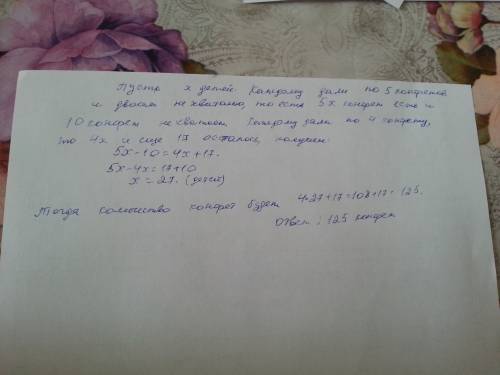 Пусть x детей. Каждому дали по 5 конфетов
и двоим не хватило, то есть 5x конфет есть и
10 конфет не хватает. Каждому дали по 4 конфету,
то 4x и еще 17 осталось, получаем:
5x-10=4x+17.
5x-4x=17+10
x=27. (детей)
Тогда количество конфет будет 4·27+17=108+17=125.
Ответ: 125 конфет